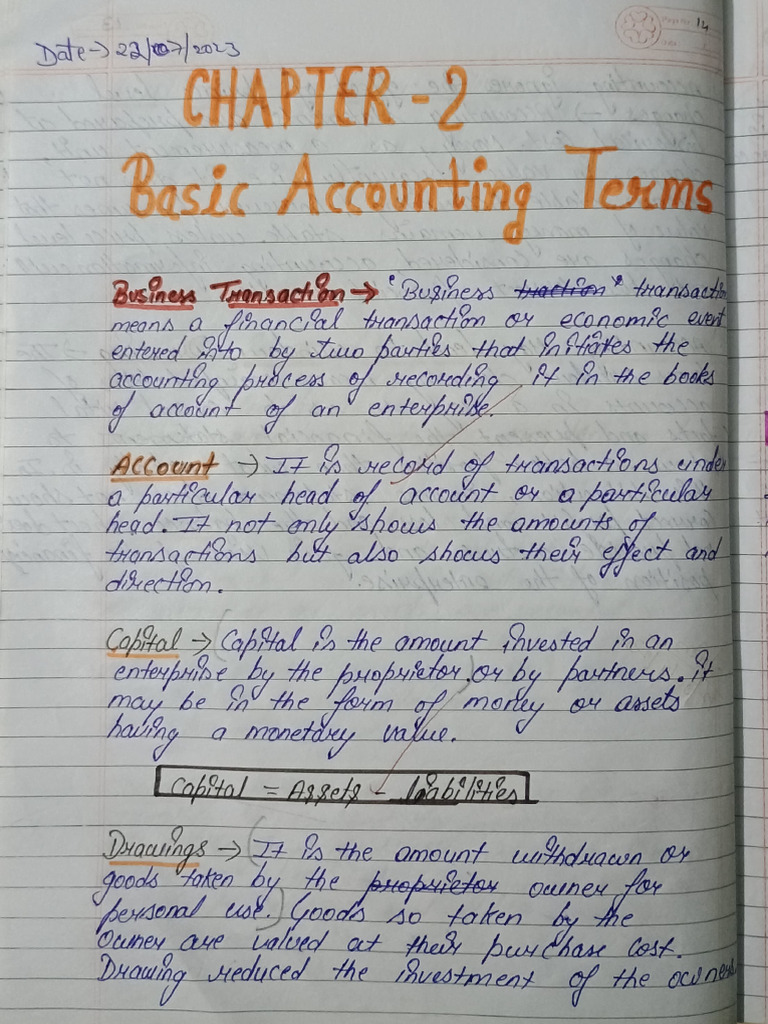 14
Date → 22/07/2023
CHAPTER - 2
Basic Accounting Terms
Business Transaction → "Business traction" transaction
means a financial transaction or economic event
entered into by two parties that initiates the
accounting process of recording it in the books
of account of an enterprise.
Account → It is record of transactions under
a particular head of account or a particular
head. It not only shows the amounts of
transactions but also shows their effect and
direction.
Capital → (Capital is the amount invested in an
enterprise by the proprietor) or by partners. it
may be in the form of money or assets
having a monetary value.
Capital = Assets - liabilities
Drawings → (It is the amount withdrawn or
goods taken by the proprietor owner for
personal use.) Goods so taken by the
Owner are valued at their purchase cost.
Drawing reduced the investment of the owners